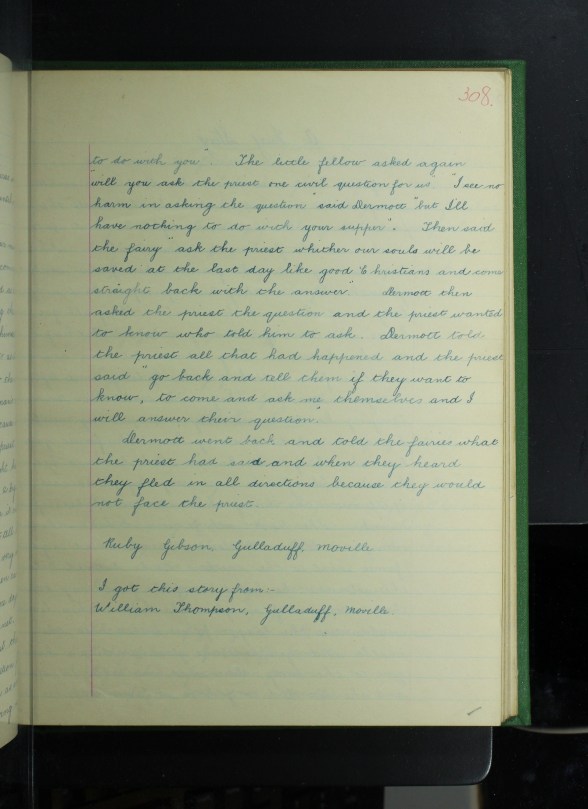 308.
to do with you". The little fellow asked again
"will you ask the priest one civil question for us "I see no
harm in asking the question" said Dermott "but I'll
have nothing to do with your supper". Then said
the fairy "ask the priest whither our souls will be
saved at the last day like good Christians and come
straight back with the answer" Dermott then
asked the priest the question and the priest wanted
to know who told him to ask. Dermott told
the priest all that had happened and the priest
said "go back and tell them if they want to
know, to come and ask me themselves and I
will answer their question"
Dermott went back and told the fairies what
the priest had said and when they heard
they fled in all directions because they would
not face the priest.
Ruby Gibson, Gulladuff, Moville
I got this story from:-
William Thompson, Gulladuff, Moville.